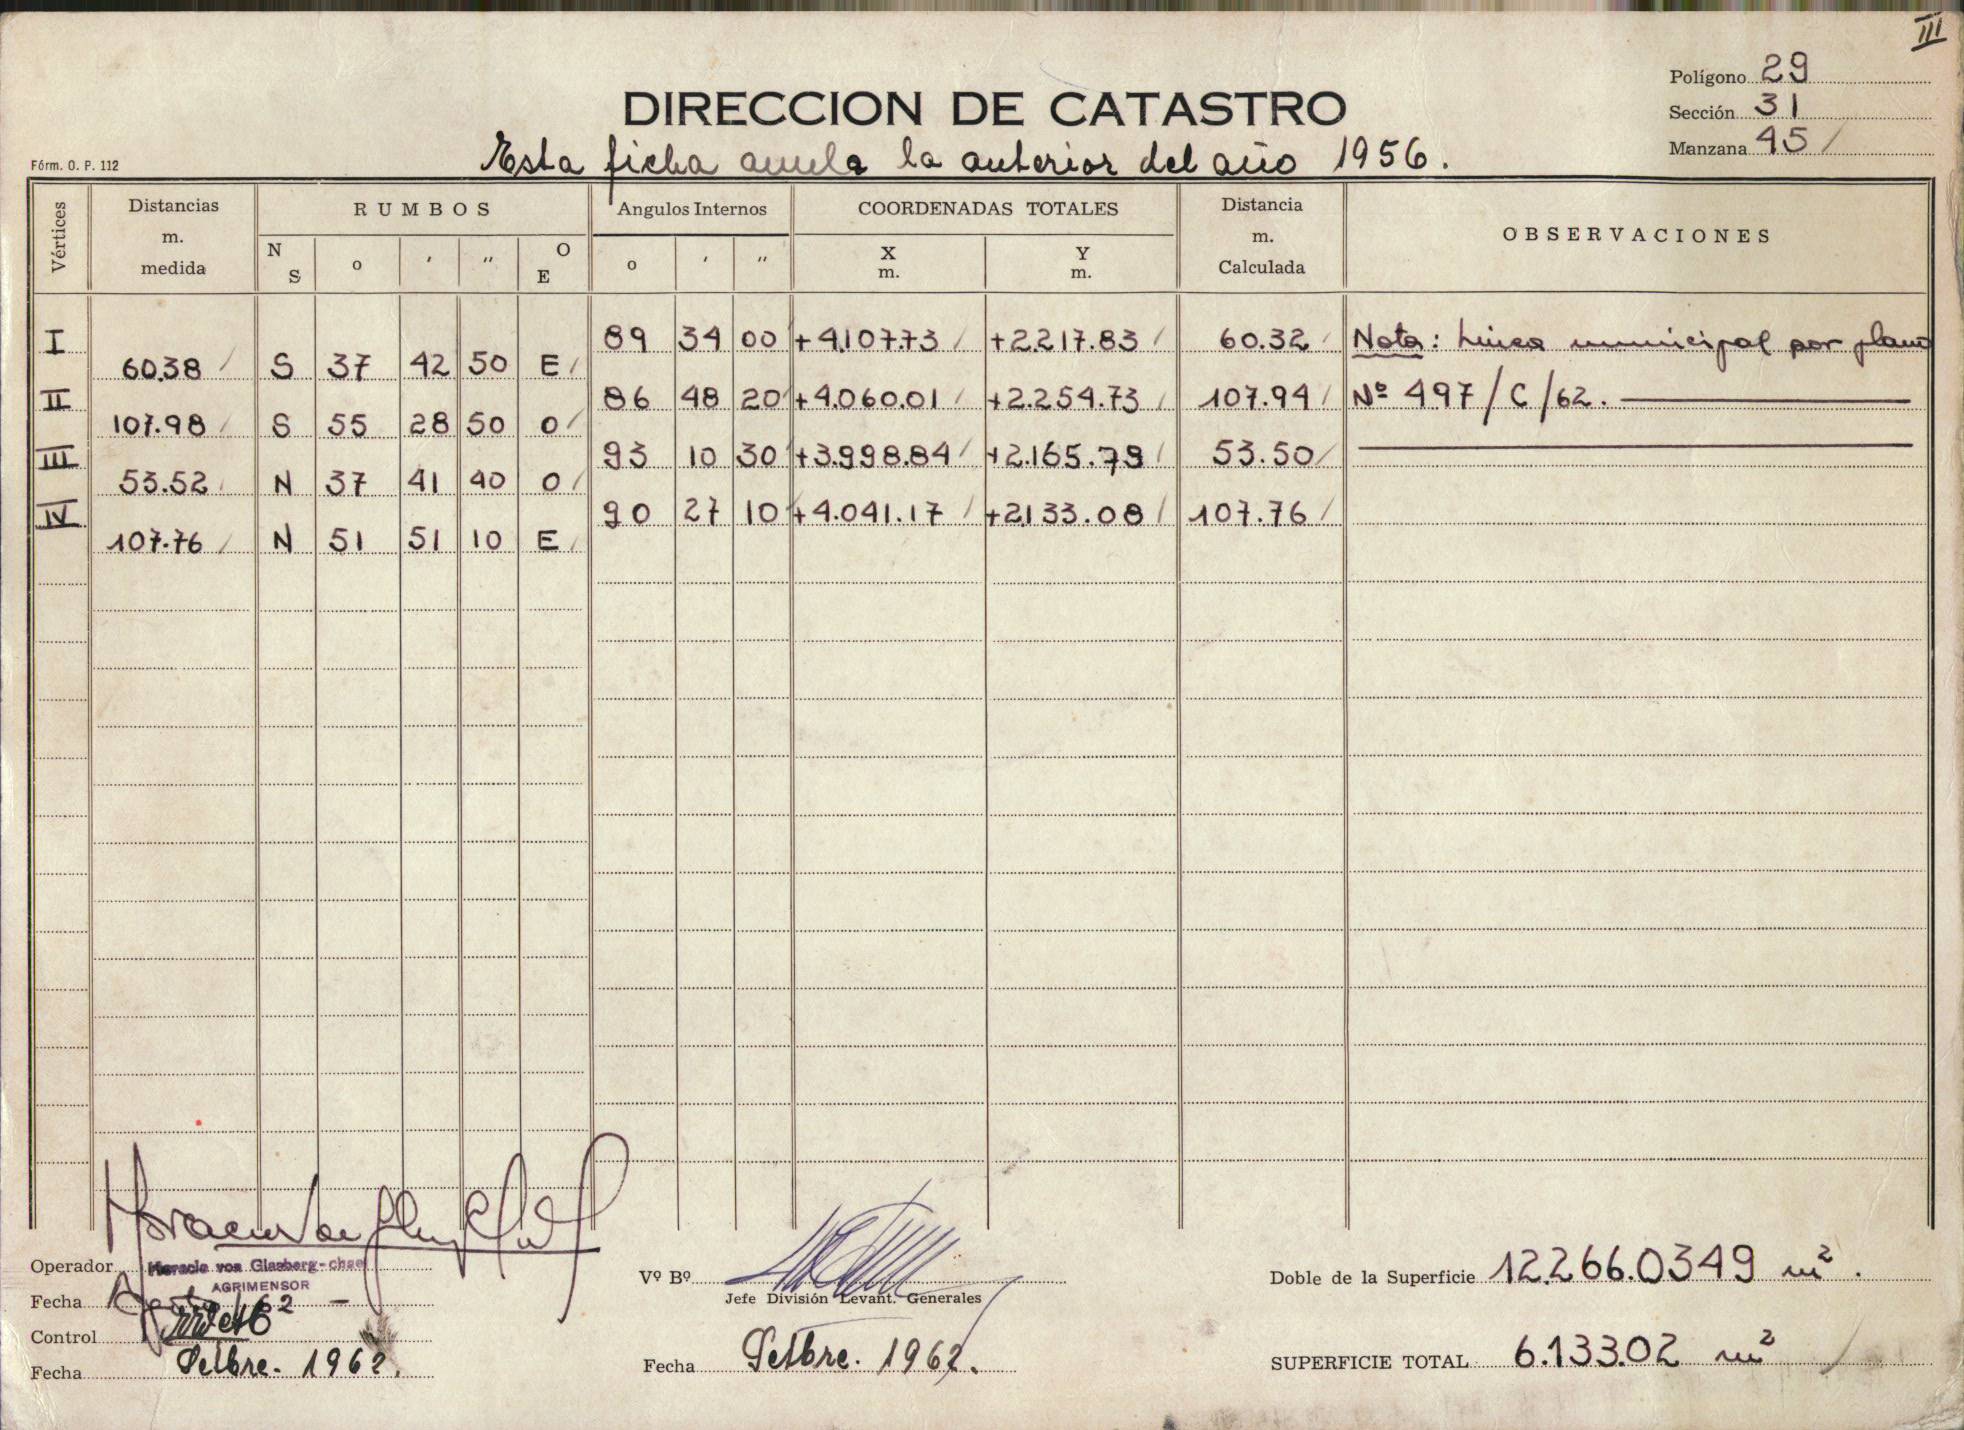 III
Polígono 29
Sección 31
Manzana 45
DIRECCION DE CATASTRO
Esta ficha anula la anterior del año 1956.
Fórm. O. P. 112
Vértices Distancias m. medida RUMBOS Angulos Internos COORDENADAS TOTALES Distancia m. Calculada OBSERVACIONES
N S o ' " O E o ' " X m. Y m.
I 89 34 00 +4.107.73 +2.217.83 60.32 Nota: Línea municipal por plano
60.38 S 37 42 50 E
II 86 48 20 +4.060.01 +2.254.73 107.94 Nº 497/C/62.
107.98 S 55 28 50 O
III 93 10 30 +3.998.84 +2.165.79 53.50
53.52 N 37 41 40 O
IV 90 27 10 +4.041.17 +2.133.08 107.76
107.76 N 51 51 10 E
Operador Horacio von Glasberg-chsel
AGRIMENSOR
Fecha Agosto 62
Control
Fecha Setbre. 1962.
Vº Bº
Jefe División Levant. Generales
Fecha Setbre. 1962.
Doble de la Superficie 12.266.0349 m².
SUPERFICIE TOTAL 6.133.02 m²